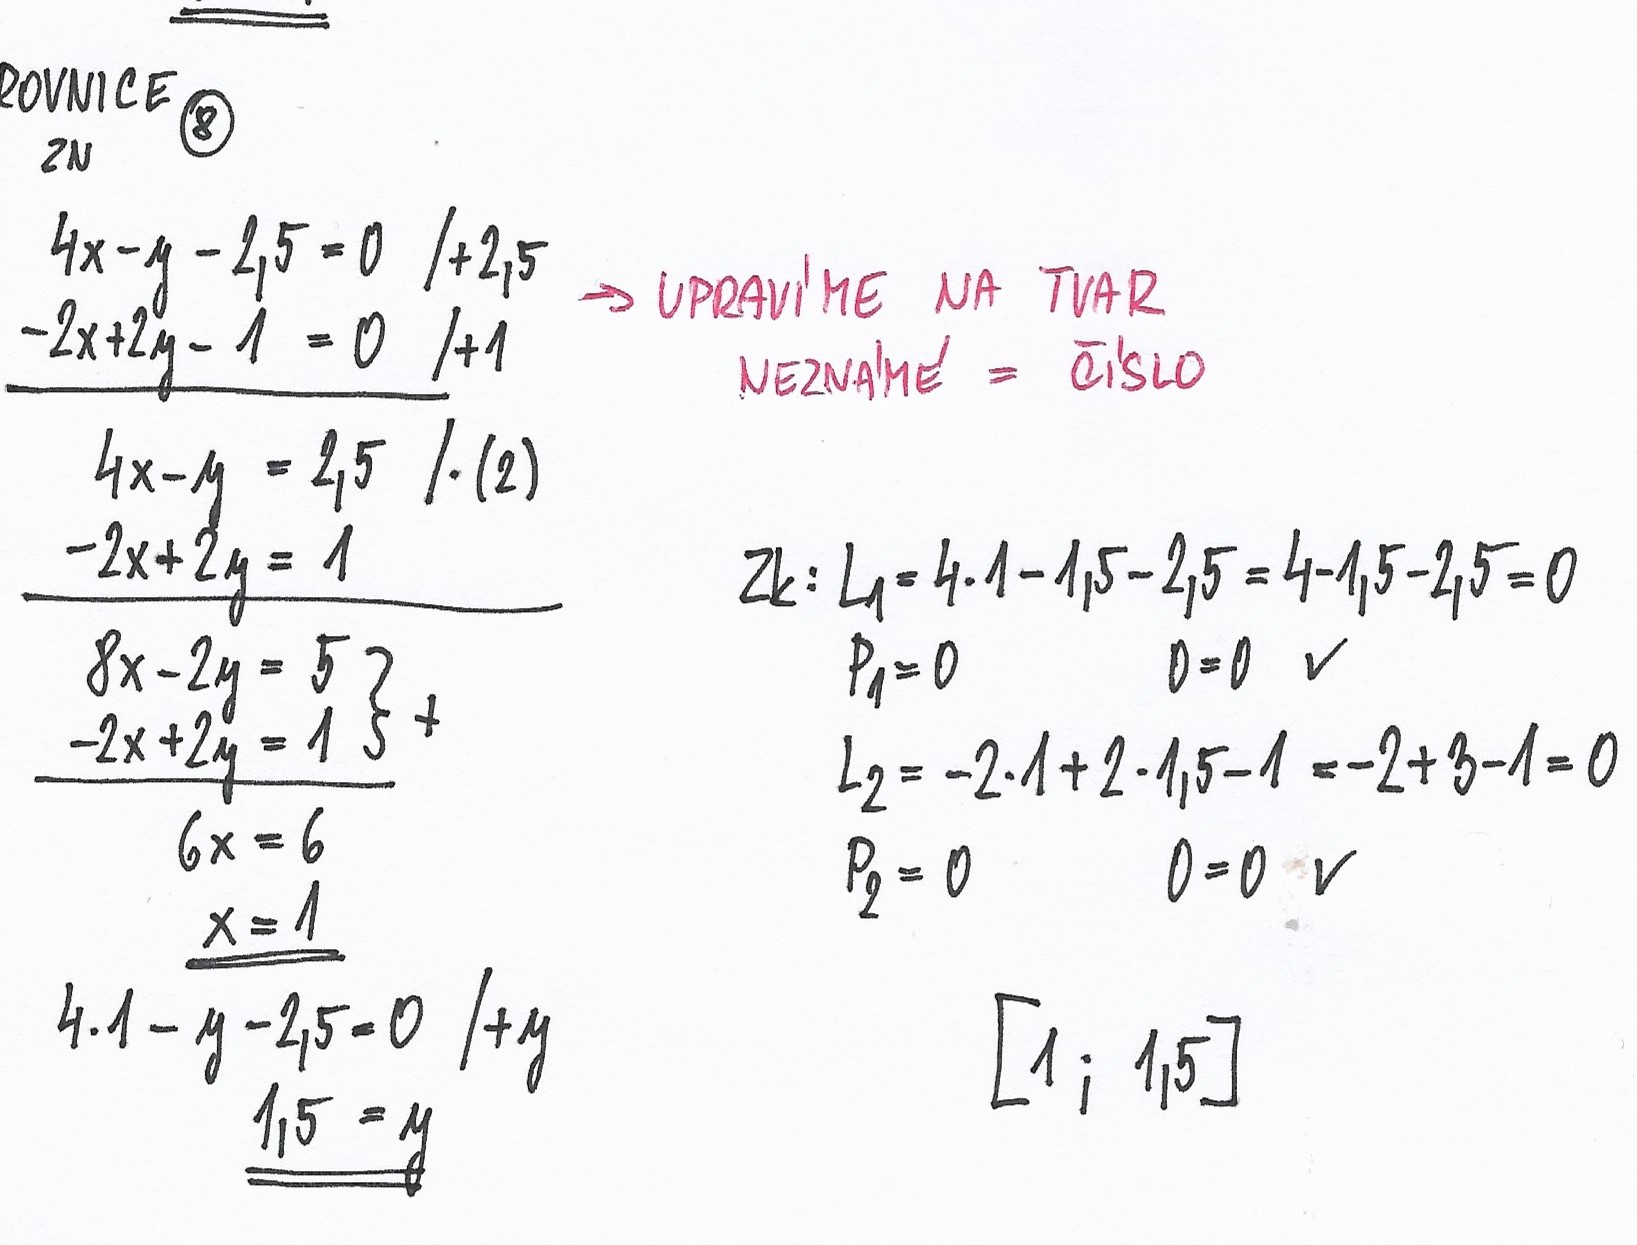 ROVNICE ⑧
ZN
4x-y-2,5=0 /+2,5
-2x+2y-1=0 /+1
→ UPRAVÍME NA TVAR
NEZNÁMÉ = ČÍSLO
4x-y=2,5 /·(2)
-2x+2y=1
8x-2y=5
-2x+2y=1 } +
6x=6
x=1
4·1-y-2,5=0 /+y
1,5=y
Zk: L₁=4·1-1,5-2,5=4-1,5-2,5=0
P₁=0 0=0 ✓
L₂=-2·1+2·1,5-1=-2+3-1=0
P₂=0 0=0 ✓
[1; 1,5]